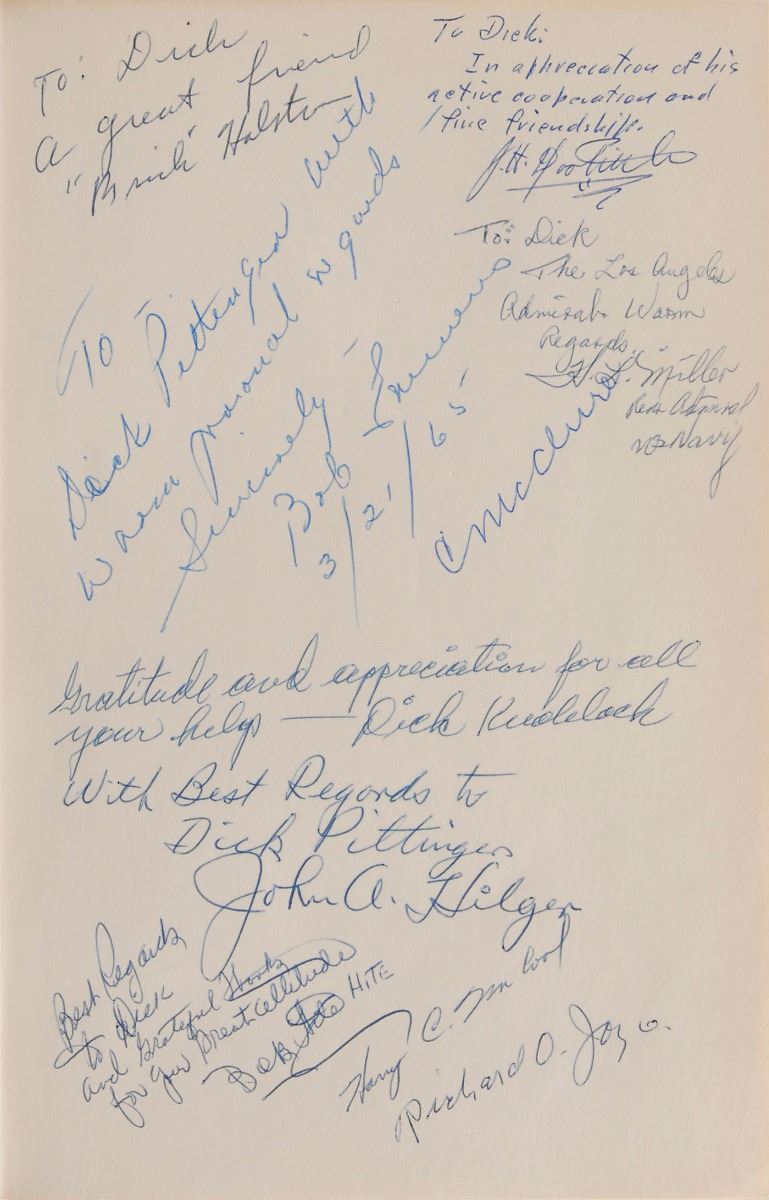 To: Dick
A great friend
"Brick" Holstrom
To Dick:
In appreciation of his
active cooperation and
fine friendship.
J.H. Doolittle
To: Dick
The Los Angeles
Admiral. Warm
Regards.
H. L. Miller
Rear Admiral
US Navy
To
Dick Pittenger with
warm personal regards
Sincerely
Bob
3/21/65
C McClure
Gratitude and appreciation for all
your help — Dick Knobloch
With Best Regards to
Dick Pittinger
John A. Hilger
Best Regards
to Dick
and Grateful Thanks
for your Great attitude
Bob Hite HITE
Harry C. McCool
Richard O. Joyce.